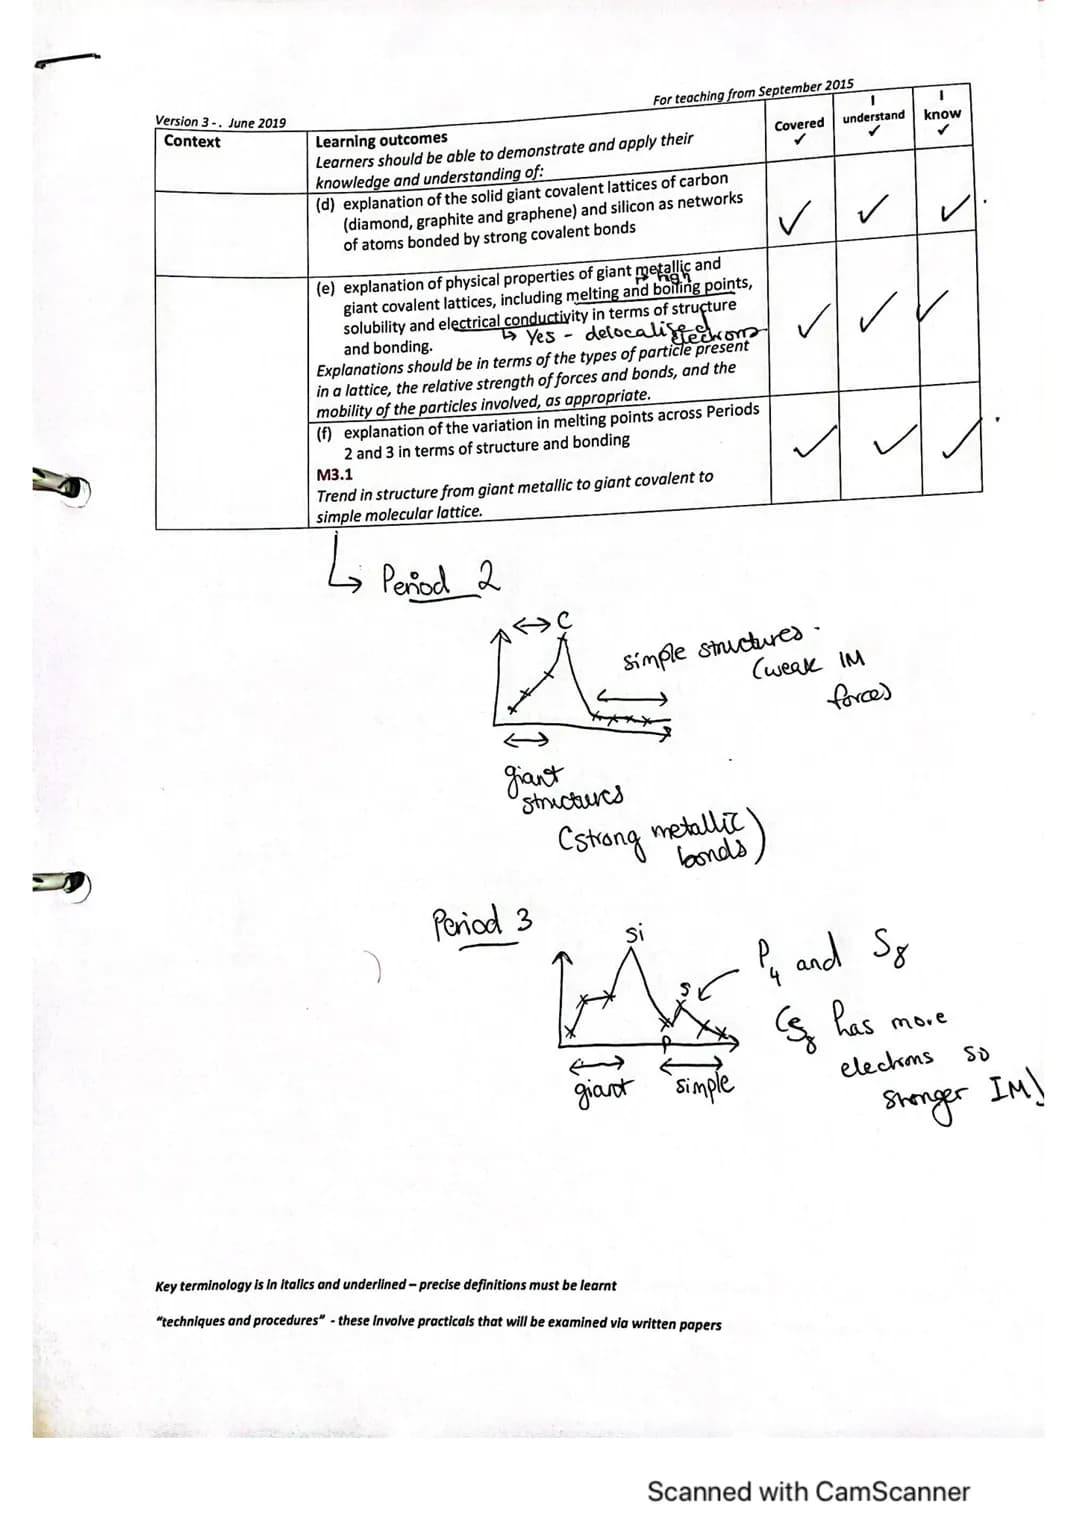 For teaching from September 2015
Version 3 -. June 2019
Context
Learning outcomes
Learners should be able to demonstrate and apply their
knowledge and understanding of:
Covered
✓
I
understand
✓
I
know
✓
(d) explanation of the solid giant covalent lattices of carbon
(diamond, graphite and graphene) and silicon as networks
of atoms bonded by strong covalent bonds
✓ ✓ ✓
(e) explanation of physical properties of giant metallic and
giant covalent lattices, including melting and boiling points,
↳ high
solubility and electrical conductivity in terms of structure
and bonding.
↳ Yes - delocalised
electrons
Explanations should be in terms of the types of particle present
in a lattice, the relative strength of forces and bonds, and the
mobility of the particles involved, as appropriate.
✓ ✓ ✓
(f) explanation of the variation in melting points across Periods
2 and 3 in terms of structure and bonding
M3.1
Trend in structure from giant metallic to giant covalent to
simple molecular lattice.
✓ ✓ ✓
↳ Period 2
C
simple structures.
(weak IM
forces)
giant
structures
(strong metallic
bonds)
Period 3
Si
S
P
P4 and S8
↳ S8 has more
electrons so
stronger IM)
giant
simple
Key terminology is in italics and underlined – precise definitions must be learnt
"techniques and procedures" - these involve practicals that will be examined via written papers
Scanned with CamScanner